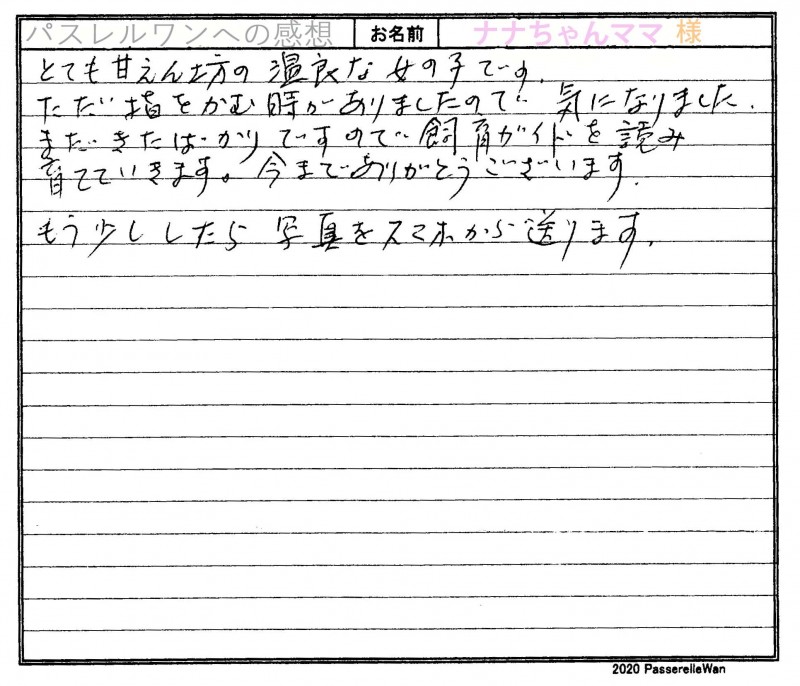 パスレルワンへの感想 お名前 ナナちゃんママ 様
とても甘えん坊の温良な女の子です.
ただ指をかむ時がありましたので気になりました.
まだきたばかりですので飼育ガイドを読み
育てていきます。今までありがとうございます.
もう少ししたら写真をスマホから送ります.
2020 PasserelleWan